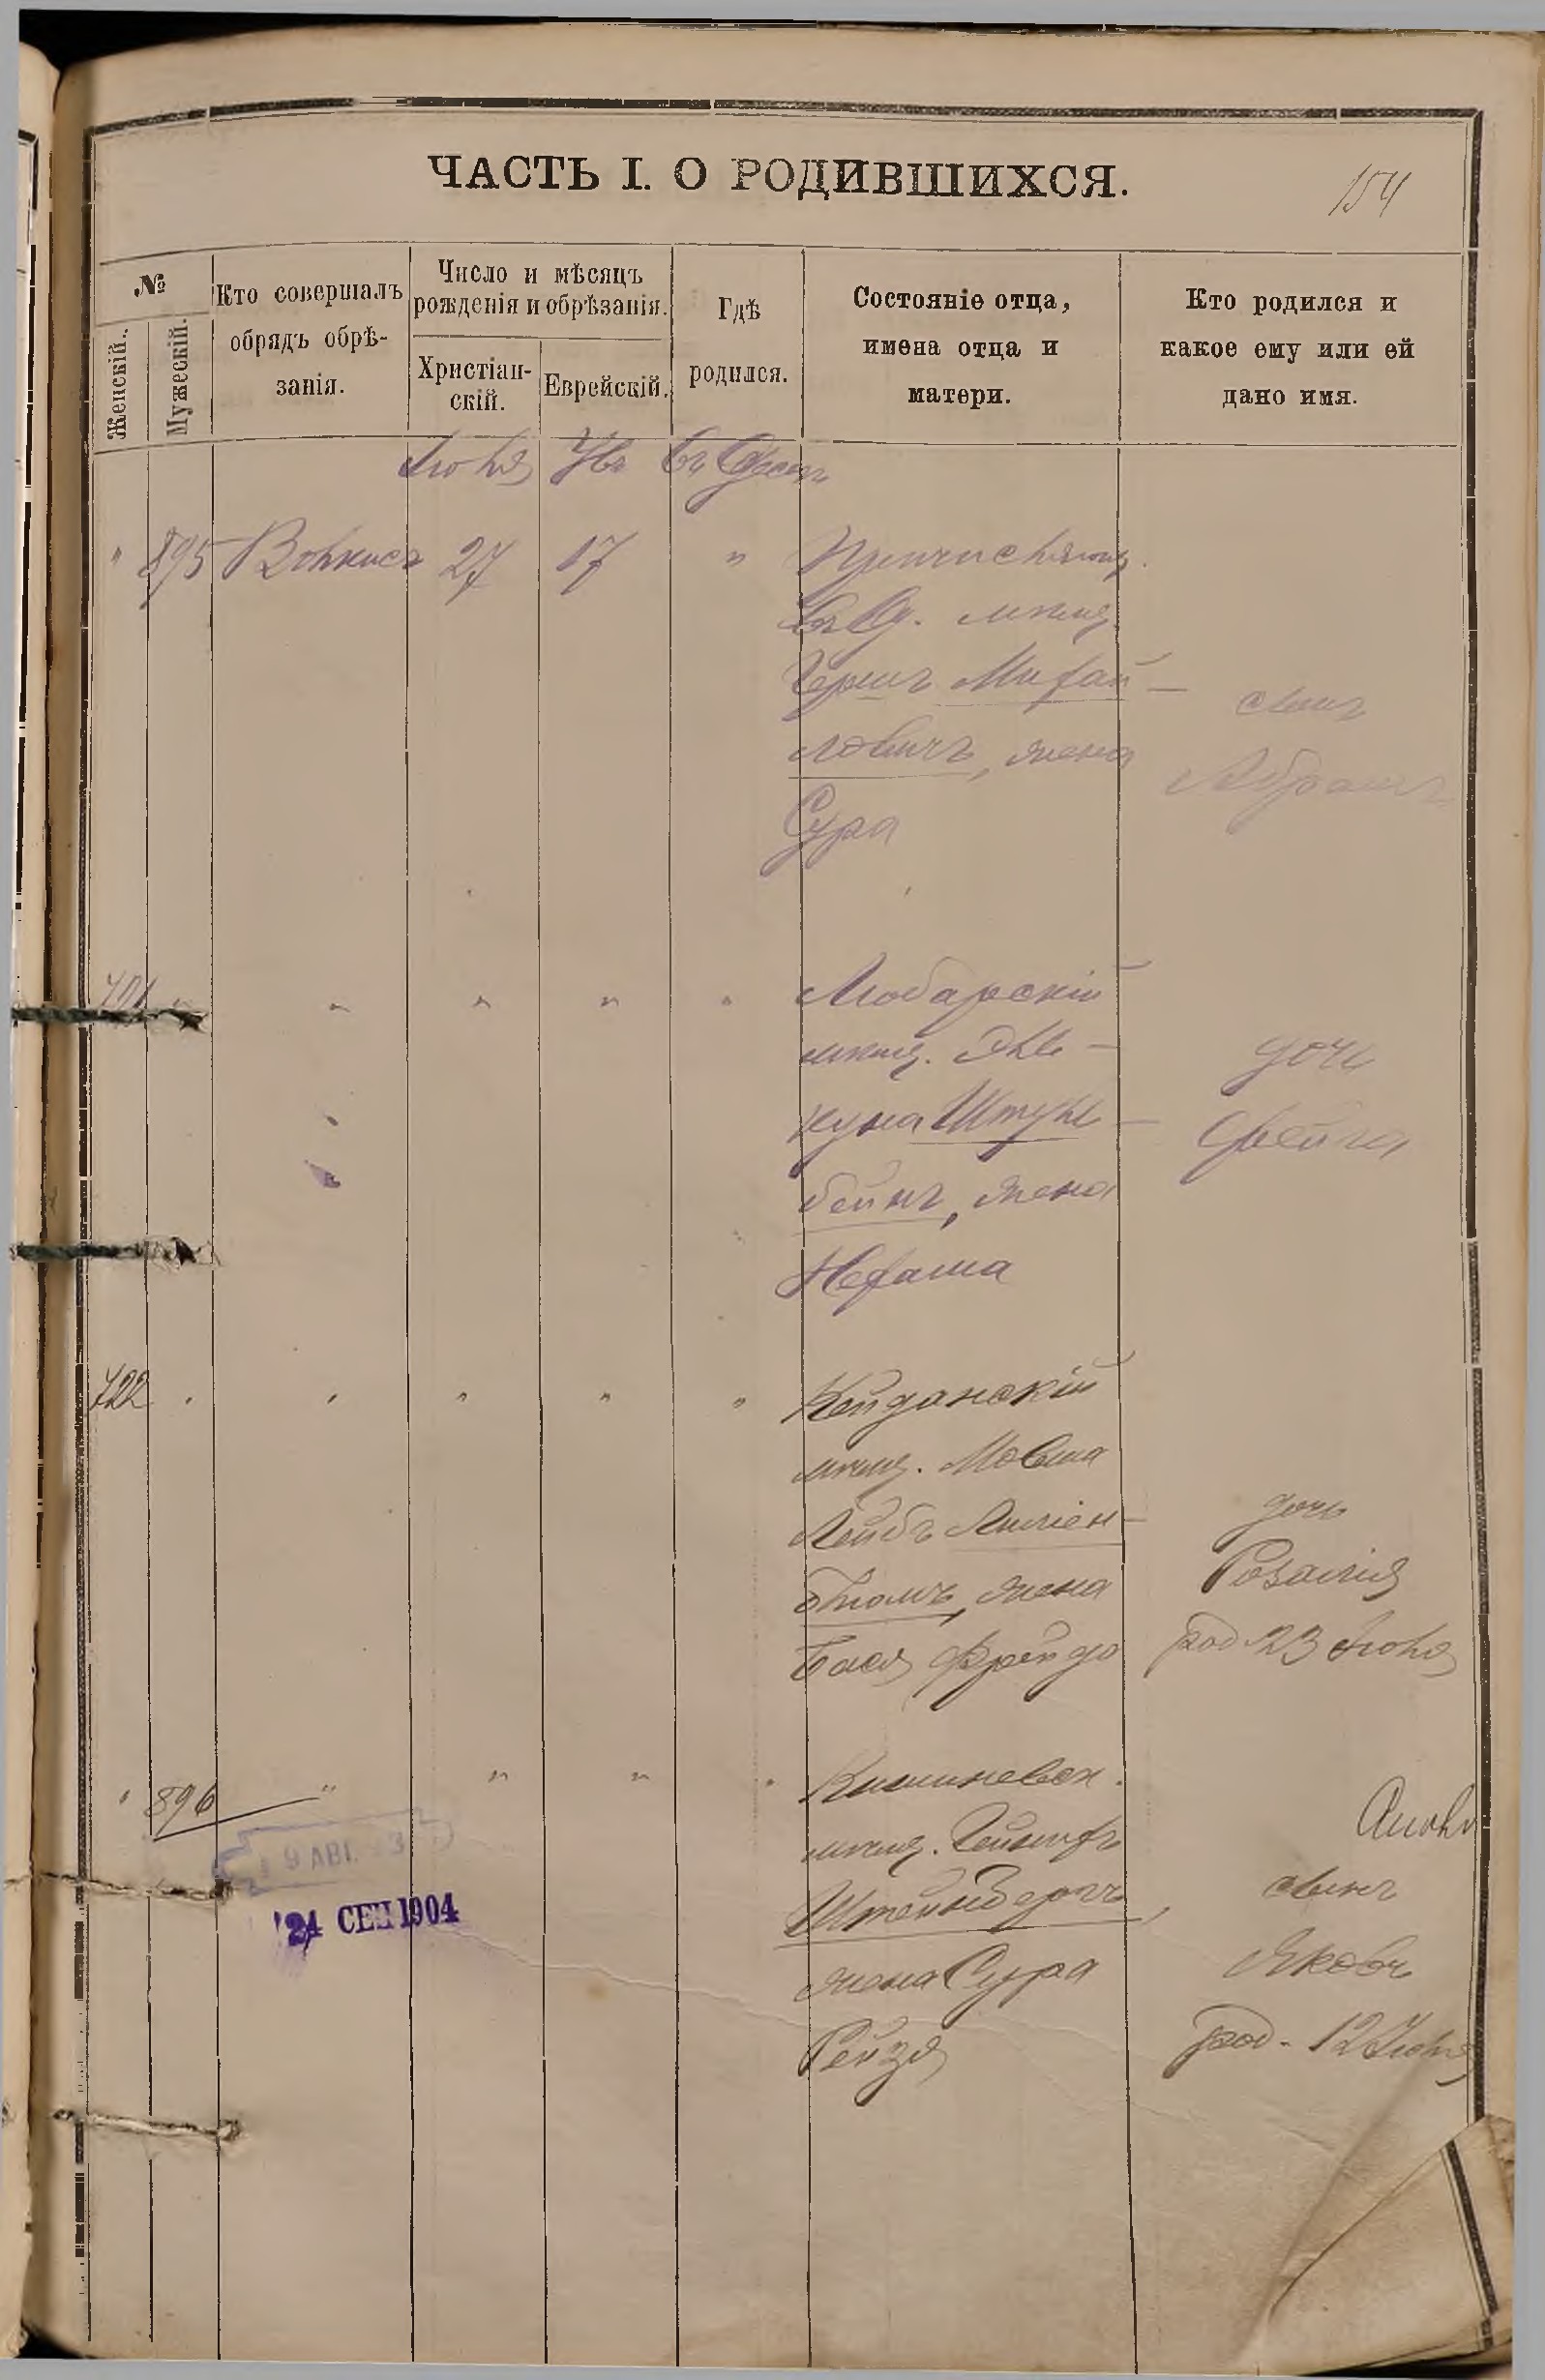 ЧАСТЬ I. О РОДИВШИХСЯ.
154
№
Женскій.
Мужескій.
Кто совершалъ
обрядъ обрѣ-
занія.
Число и мѣсяцъ
рожденія и обрѣзанія.
Христіан-
скій.
Еврейскій.
Гдѣ
родился.
Состояніе отца,
имена отца и
матери.
Кто родился и
какое ему или ей
дано имя.
Іюля Ув въ Одессѣ
" 895 27 17 "
въ Од. мѣщ.
Гершъ Михай-
ловичъ, жена
Сура
сынъ
Абрамъ
" " " " "
Любарскій
мѣщ. Эль-
куна Штуль-
бейнъ, жена
Нехама
дочь
Фейга
722 " " " " "
Кейданскій
мѣщ. Мовша
Лейбъ Лиліен-
блюмъ, жена
Бася Фрейда
дочь
Розалія
род 23 Іюля
" 896 " " " "
Кишиневск.
мѣщ. Гейнихъ
Штейнбергъ,
жена Сура
Рейзя
сынъ
Яковъ
род. 12 Іюля
9 АВГ.
24 СЕН 1904